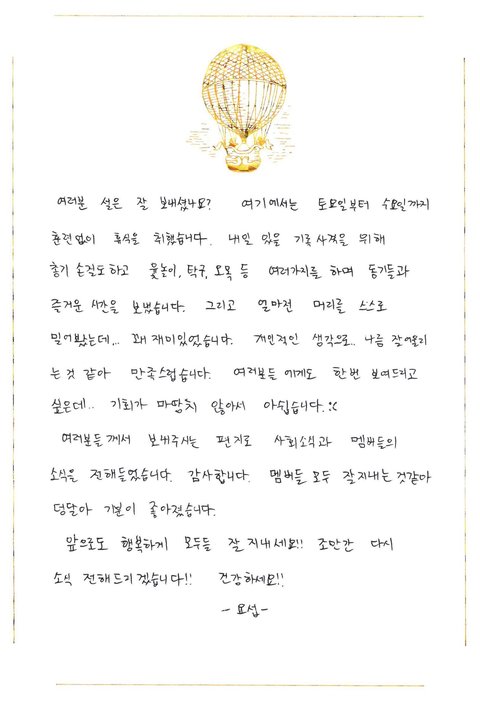 여러분 설은 잘 보내셨나요? 여기에서는 토요일부터 수요일까지
훈련없이 휴식을 취했습니다. 내일 있을 기록사격을 위해
총기 손질도하고 윷놀이, 탁구, 오목 등 여러가지를 하며 동기들과
즐거운 시간을 보냈습니다. 그리고 얼마전 머리를 스스로
밀어봤는데... 꽤 재미있었습니다. 개인적인 생각으로.. 나름 잘어울리
는 것 같아 만족스럽습니다. 여러분들에게도 한번 보여드리고
싶은데.. 기회가 마땅치 않아서 아쉽습니다.:(
여러분들께서 보내주시는 편지로 사회소식과 멤버들의
소식을 전해들었습니다. 감사합니다. 멤버들 모두 잘지내는것같아
덩달아 기분이 좋아졌습니다.
앞으로도 행복하게 모두들 잘지내세요!! 조만간 다시
소식 전해드리겠습니다!! 건강하세요!!
- 요섭 -